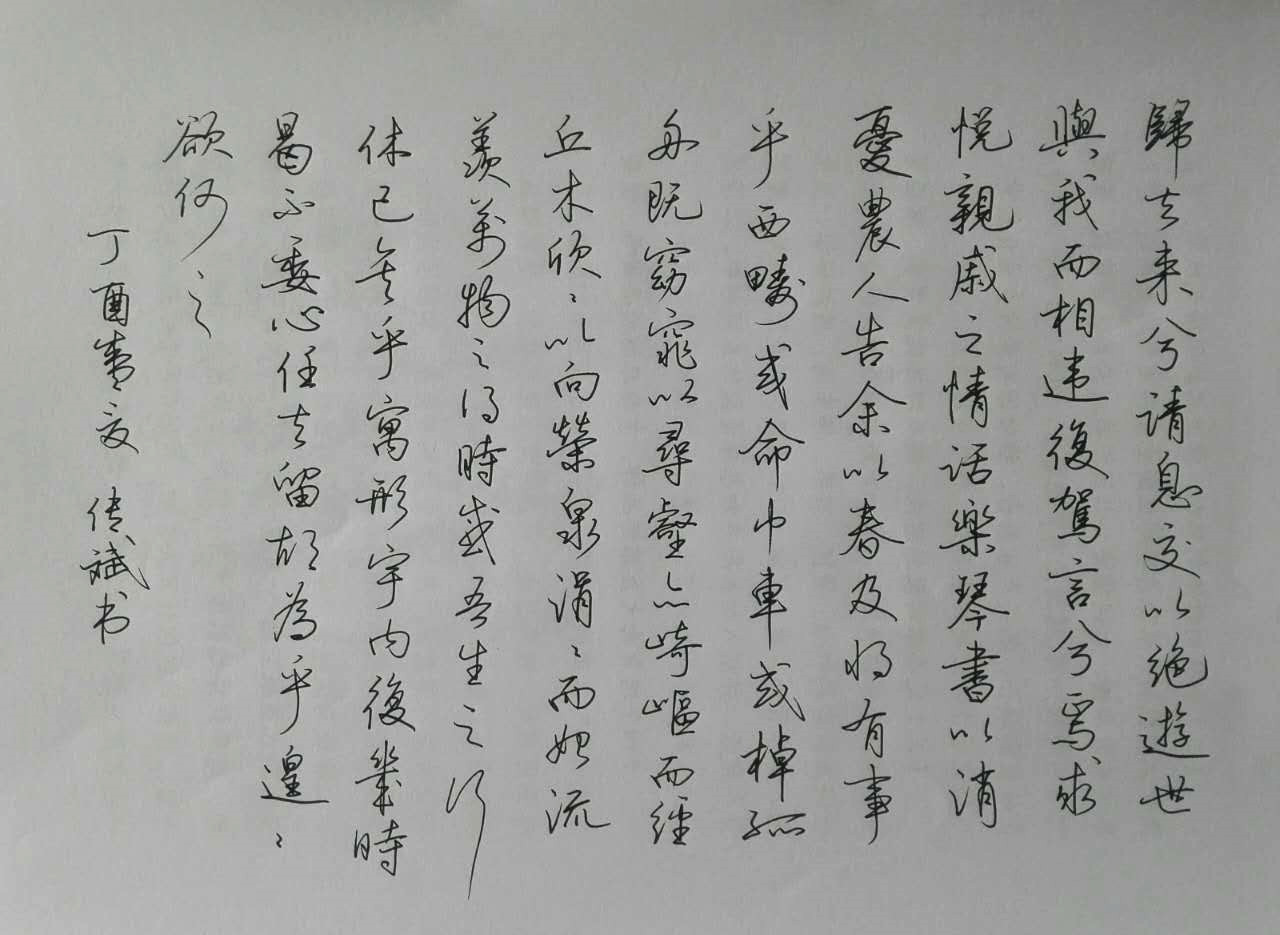 歸去来兮请息交以绝遊世
與我而相违復駕言兮焉求
悦親戚之情话樂琴書以消
憂農人告余以春及将有事
乎西疇或命巾車或棹孤
舟既窈窕以尋壑亦崎嶇而經
丘木欣〻以向榮泉涓〻而始流
羡萬物之得時感吾生之行
休已矣乎寓形宇内復幾時
曷不委心任去留胡為乎遑〻
欲何之
丁酉夏 传斌书